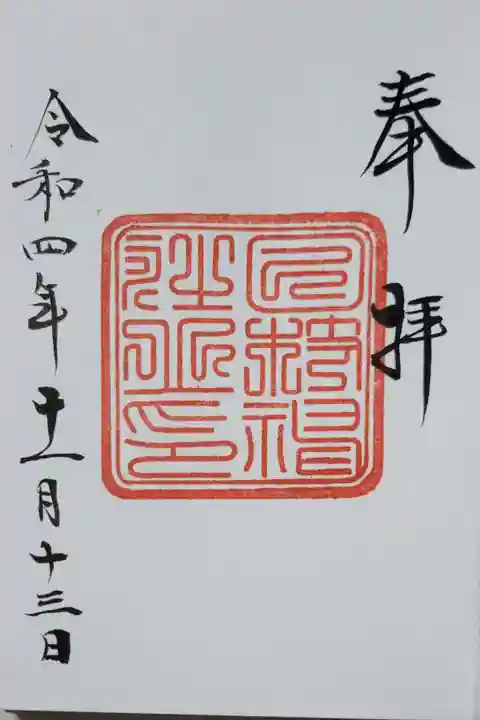 奉拝
令和四年十一月十三日